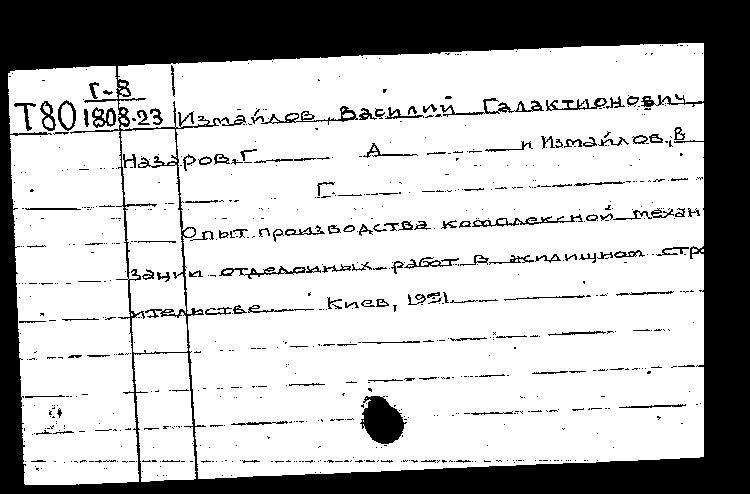 Г-8
Т80 1808-23 Измайлов, Василий Галактионович,
Назаров, Г А и Измайлов, В
Г
Опыт производства комплексной механ
зации отделочных работ в жилищном стро
ительстве Киев, 1951